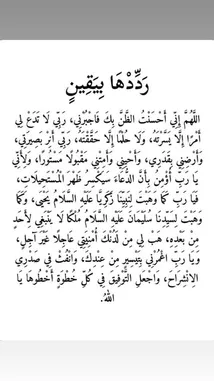 رَدِّدْهَا بِيَقِينٍ
اللَّهُمَّ إِنِّي أَحْسَنْتُ الظَّنَّ بِكَ فَاجْبُرْنِي، رَبِّي لَا تَدَعْ لِي
أَمْرًا إِلَّا يَسَّرْتَهُ، وَلَا حُلْمًا إِلَّا حَقَّقْتَهُ، رَبِّي أَنِرْ بَصِيرَتِي،
وَأَرْضِنِي بِقَدَرِي، وَأَحْيِنِي وَأَمِتْنِي مَقْبُولًا مَسْتُورًا، وَلِأَنِّي
يَا رَبِّ أُؤْمِنُ بِأَنَّ الدُّعَاءَ سَيَكْسِرُ ظَهْرَ الْمُسْتَحِيلَاتِ،
فَيَا رَبِّ كَمَا وَهَبْتَ لِنَبِيِّنَا زَكَرِيَّا عَلَيْهِ السَّلَامُ يَحْيَى، وَكَمَا
وَهَبْتَ لِسَيِّدِنَا سُلَيْمَانَ عَلَيْهِ السَّلَامُ مُلْكًا لَا يَنْبَغِي لِأَحَدٍ
مِنْ بَعْدِهِ، هَبْ لِي مِنْ لَدُنْكَ أُمْنِيَتِي عَاجِلًا غَيْرَ آجِلٍ،
وَيَا رَبِّ اغْمُرْنِي بِتَيْسِيرٍ مِنْ عِنْدِكَ، وَانْفُثْ فِي صَدْرِي
الِانْشِرَاحَ، وَاجْعَلِ التَّوْفِيقَ فِي كُلِّ خُطْوَةٍ أَخْطُوهَا يَا
اللهُ.